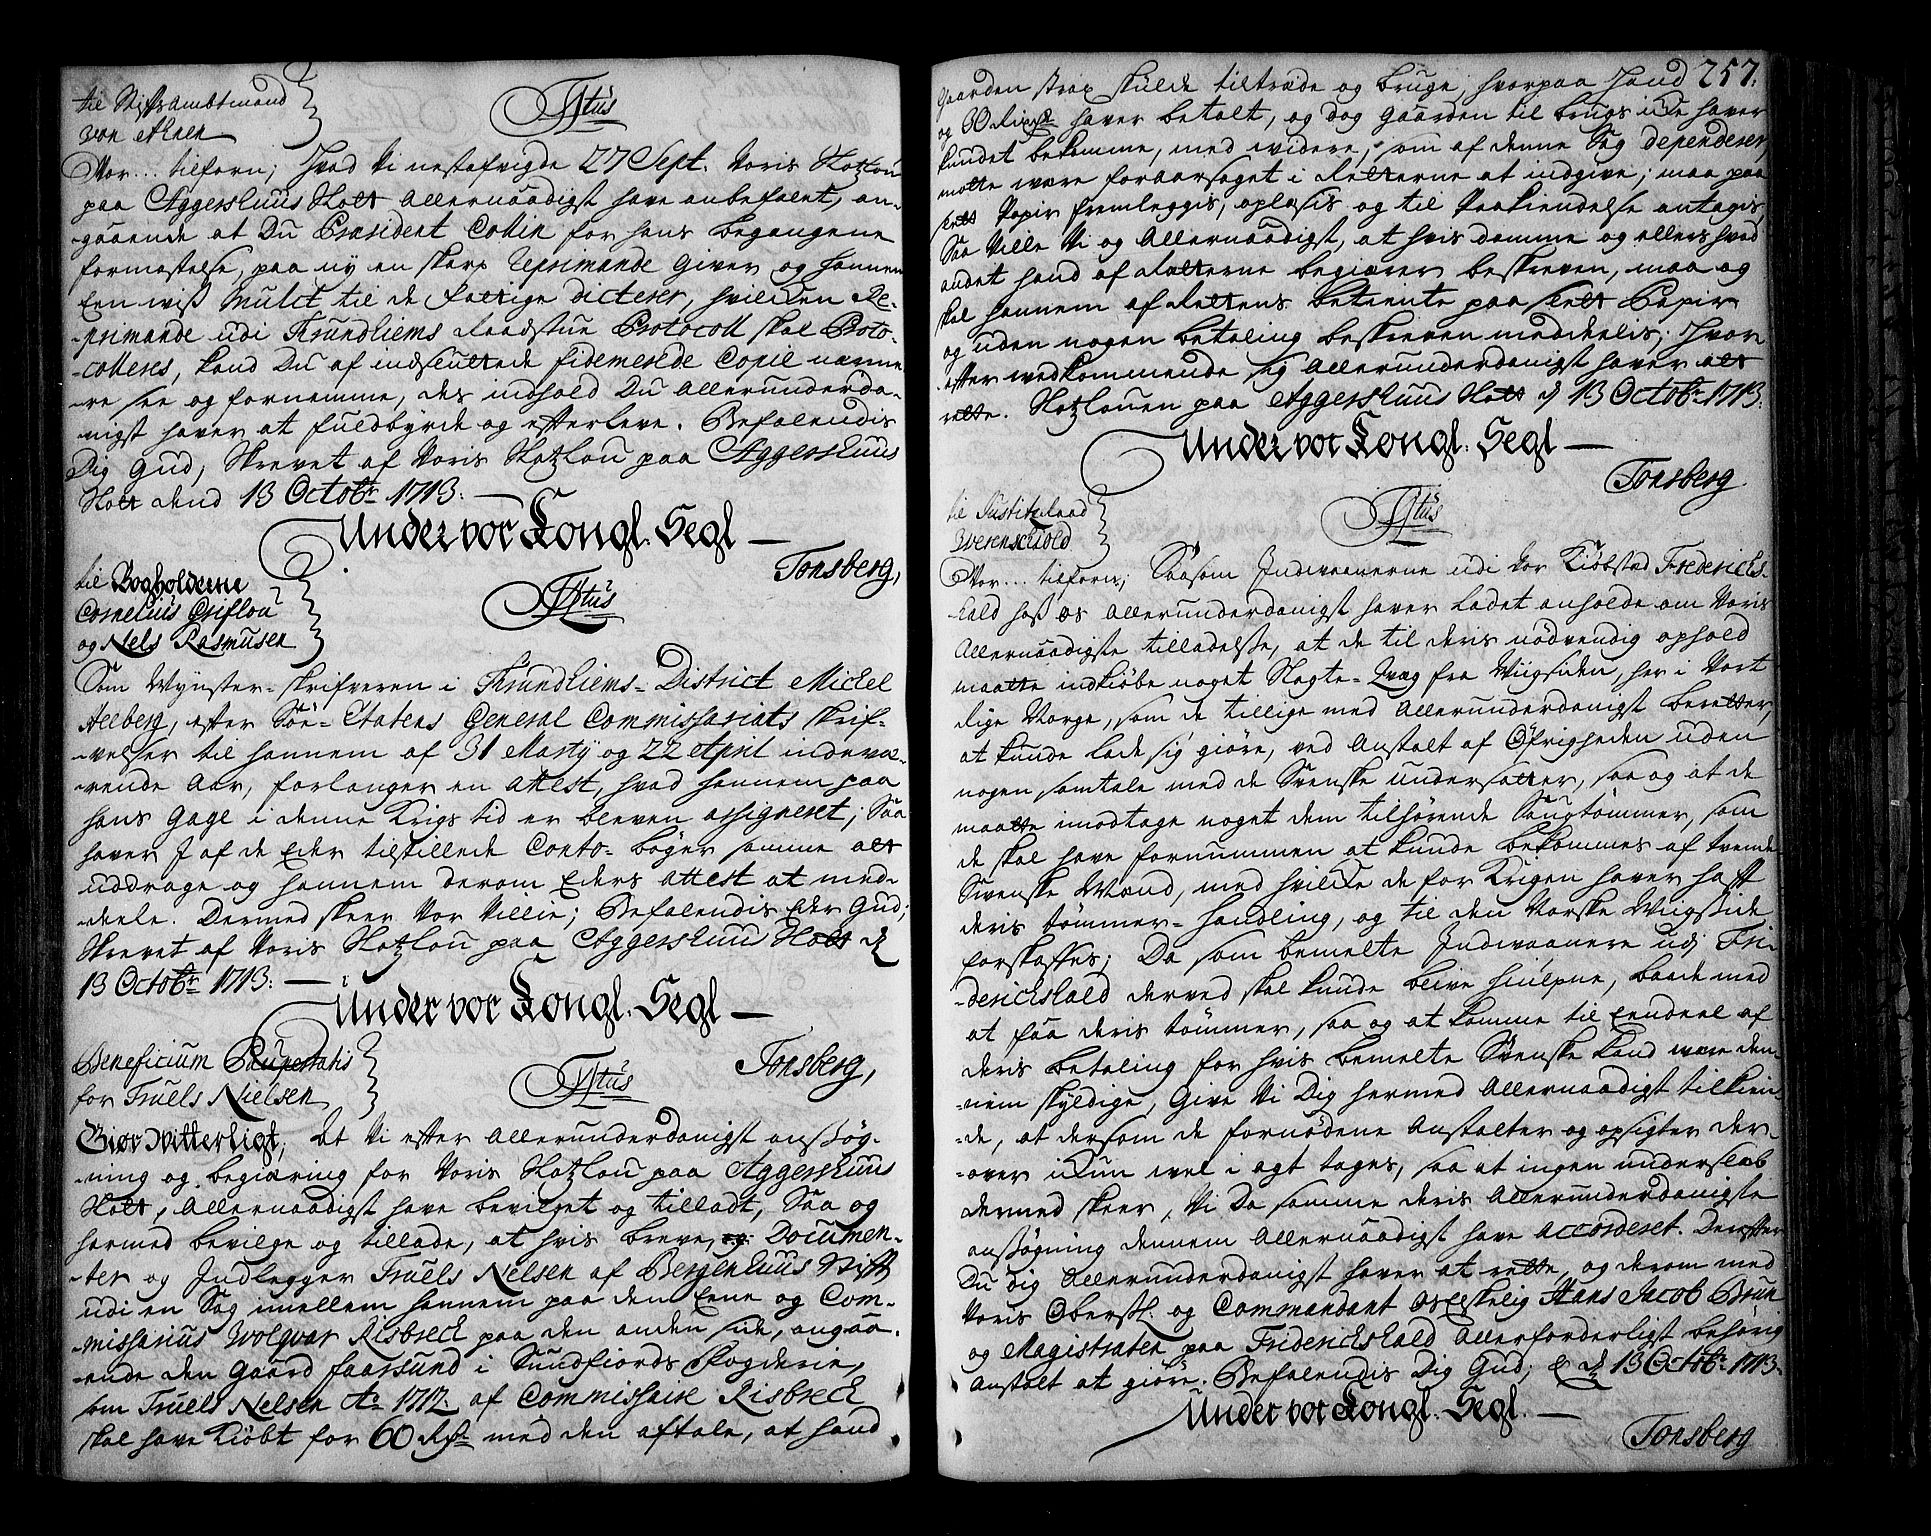 til Stiftsambtmand
von Ahnen
F4tus
Vor... tilforn; Hvad Vi nestafvigde 27 Sept. Voris Slotzlou
paa Aggershuus Slott Allernaadigst have anbefalet, an-
-gaaende at Du Præsident Collin for hans begangene
formastelse, paa ny en skarp Reprimande giver og hannem
Een wiß Mulct til de fattige dicterer, hvilken Re-
-primande udi Trundhiems Raadstue Protocoll skal Proto-
-colleres, kand Du af indsluttede fidemerede Copie nærme-
-re see og fornemme, des indhold Du Allerunderda-
-nigst haver at fuldbyrde og efterleve. Befalendis
Dig Gud; Skrevet af Voris Slotzlou paa Aggershuus
Slott dend 13 Octobr 1713.
Under vor Kongl. Segl
Tonsberg,
til Bogholderne
Cornelius Griflou
og Nels Rasmusen
F4tus
Som Mynster-skrifveren i Trundhiems-District Michel
Heeberg, efter Söe-Etatens General Commissariats skrif-
-velser til hannem af 31 Marty og 22 April indevæ-
-rende Aar, forlanger en Attest, hvad hannem paa
hans Gage i denne Krigs tid er bleven assigneret; Saa
haver I af de Eder tilstillede Conto-bøger samme alt
uddrage og hannem derom Eders Attest at med-
-deele. Dermed skeer Vor Villie; Befalendis Eder Gud;
Skrevet af Voris Slotzlou paa Aggershuus Slott d
13 Octobr 1713.
Under vor Kongl. Segl
Tonsberg,
Beneficium Paupertatis
for Truels Nielsen
F4tus
Giør Witterligt, At Vi efter Allerunderdanigst ansøg-
-ning og begiæring for Voris Slotzlou paa Aggershuus
Slott, Allernaadigst have bevilget og tilladt, Saa og
hermed bevilge og tillade, at hvis breve, Documen-
-ter og Indlegger Truels Nelsen af Bergenhuus Stift
udi en Sag imellem hannem paa den Eene og Com-
-missarius Wolqvar Risbreck paa den anden side, angaa-
-ende den Gaard faarsund i Sundfiords fogderie,
som Truels Nelsen Ao 1712. af Commissaire Risbreck
skal have kiøbt for 60 Rdr med den aftale, at hand
257.
Gaarden strax skulde tiltræde og bruge, hvorpaa hand
og 30 Rixdr haver betalt, og dog Gaarden til brugs icke haver
kundet bekomme, med widere, som af denne Sag dependerer,
motte være foraarsaget i Retterne at indgive; maa paa
slett Papir fremleggis, oplæsis og til Paakiendelse antagis,
Saa Ville Vi og Allernaadigst, at hvis domme og ellers hved
andet hand af Retterne begiærer beskreven, maa og
skal hannem af Rettens betiente paa slett Papir
og uden nogen betaling beskreven meddeelis; Hvor
-efter wedkommende sig Allerunderdanigst haver at
rette. Slotzlouen paa Aggershuus Slott d 13 Octobr 1713.
Under vor Kongl. Segl
Tonsberg
til Justitzraad
Werenschold
F4tus
Vor... tilforn; Saasom Indwaanerne udi Vor Kiøbstad Friderichs-
-hald hoß os Allerunderdanigst haver ladet anholde om Voris
Allernaadigste tilladelse, at de til deris nødvendig ophold
maatte indkiøbe noget Slagte-Qvæg fra Wiigsiden, her i Vort
Rige Norge, som de tillige med Allerunderdanigst beretter,
at kunde lade sig giøre, ved Anstalt af Øfrigheden uden
nogen samtale med de Svenske undersatter, saa og at de
maatte imodtage noget dem tilhørende Saugtømmer, som
de skal have fornummen at kunde bekommes af tvende
Swenske Mænd, med hvilcke de for Krigen haver haft
deris tømmer-handling, og til den Norske Wiigßide
forskaffes; Da som bemelte Indwaanere udj Fri-
-derichshald derved skal kunde blive hiulpne, baade med
at faa deris tømmer, saa og at komme til Eendeel af
deris betaling for hvis bemelte Svenske kand være den-
-nem skyldige, Give Vi Dig hermed Allernaadigst tilkien-
-de, at dersom de fornødene Anstalter og opsigter der-
-over ickun wel i agt tages, saa at ingen underslæb
dermed skeer, Vi da samme deris Allerunderdanigste
ansøgning dennem Allernaadigst have accorderet. Derefter
Du dig Allerunderdanigst haver at rette, og derom med
Voris Oberstl. og Commandant Hans Jacob Brun
og Magistraten paa Friderichshald Allerforderligst behørig
Anstalt at giøre. Befalendis Dig Gud; d 13 Octobr 1713.
Under vor Kongl. Segl.
Tonsberg